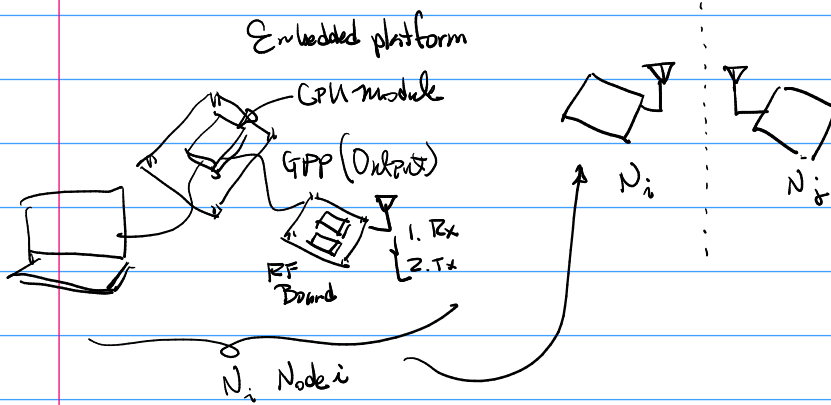 Embedded platform
CPU module
GPP (Output)
1. Rx
2. Tx
RF
Board
Ni Node i
Ni
Nj